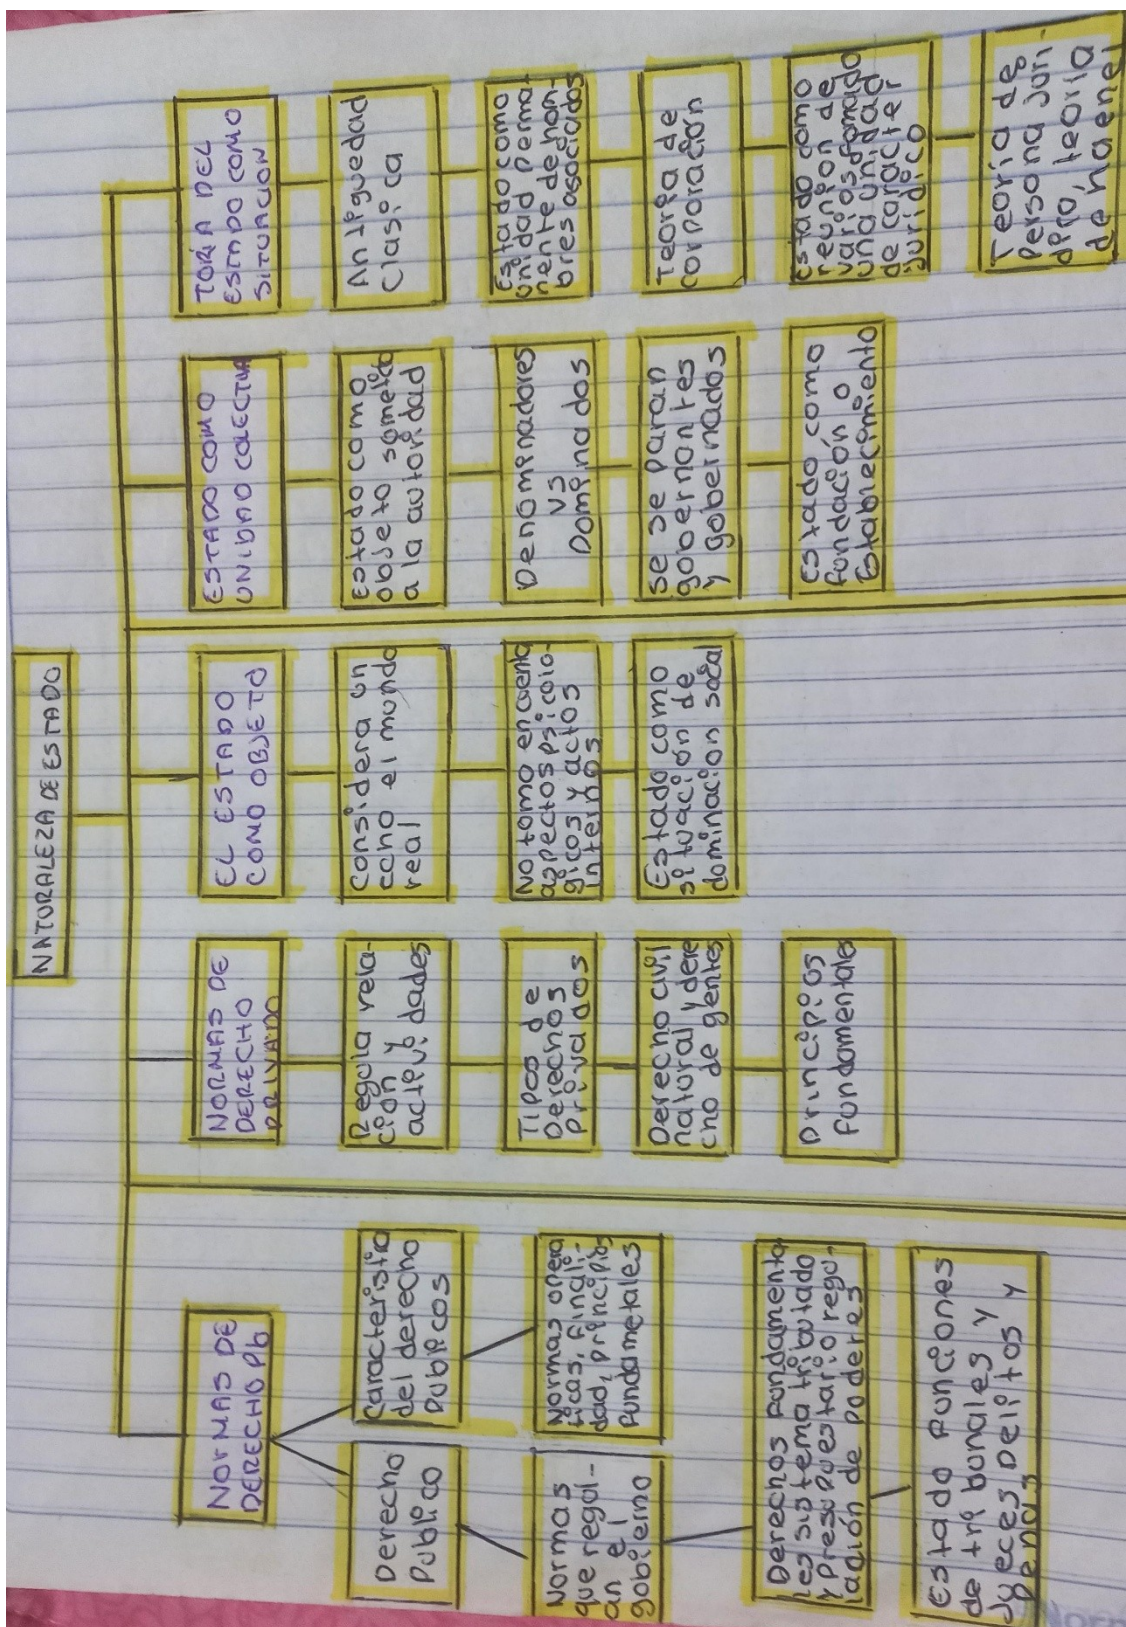 NATURALEZA DE ESTADO
NORMAS DE
DERECHO Pb
Derecho
Publico
Normas
que regal-
an el
gobierno
Caracteristia
del derecho
Publicos
Normas opera
ticas, Finali-
dad, principios
Fundametales
Derechos Fundamenta
les sistema tributado
y Presupuestario regu-
lación de poderes
Estado Funciones
de tribunales y
Jueces Delitos y
Penas
NORMAS DE
DERECHO
PRIVADO
Regula rela-
cion y
actividades
Tipos de
Derechos
Privados
Derecho civil
natural y dere
cho de gentes
Principios
Fundamentales
EL ESTADO
COMO OBJETO
considera un
echo el mundo
real
No tomo encuenta
aspectos psicolo-
gicos y actos
internos
Estado como
situación de
dominacion social
ESTADO COMO
UNIDAD COLECTIVA
Estado como
objeto sometido
a la autoridad
Denominadores
vs
Dominados
se se paran
gobernantes
y gobernados
Estado como
fundación o
Establecimiento
TORIA DEL
ESTADO COMO
SITUACION
Antiguedad
Clasica
Estado como
unidad perma-
nente de hom-
bres asociados
Teoria de
corporación
Estado como
reunion de
varios, fomado
una unidad
de caracter
Juridico
Teoria de
Persona juri-
dica, teoria
de haenel